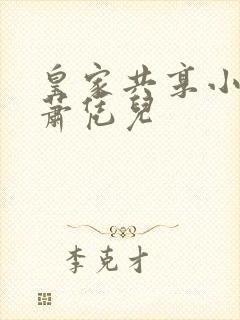 皇家共享小
蕭恁兒
李克才